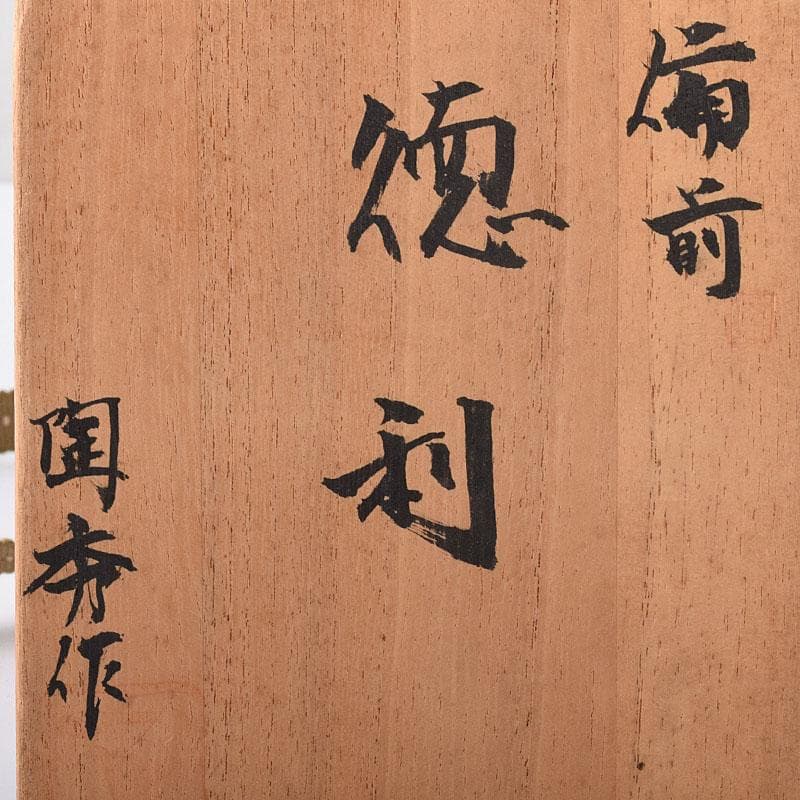 備前
徳利
陶秀作